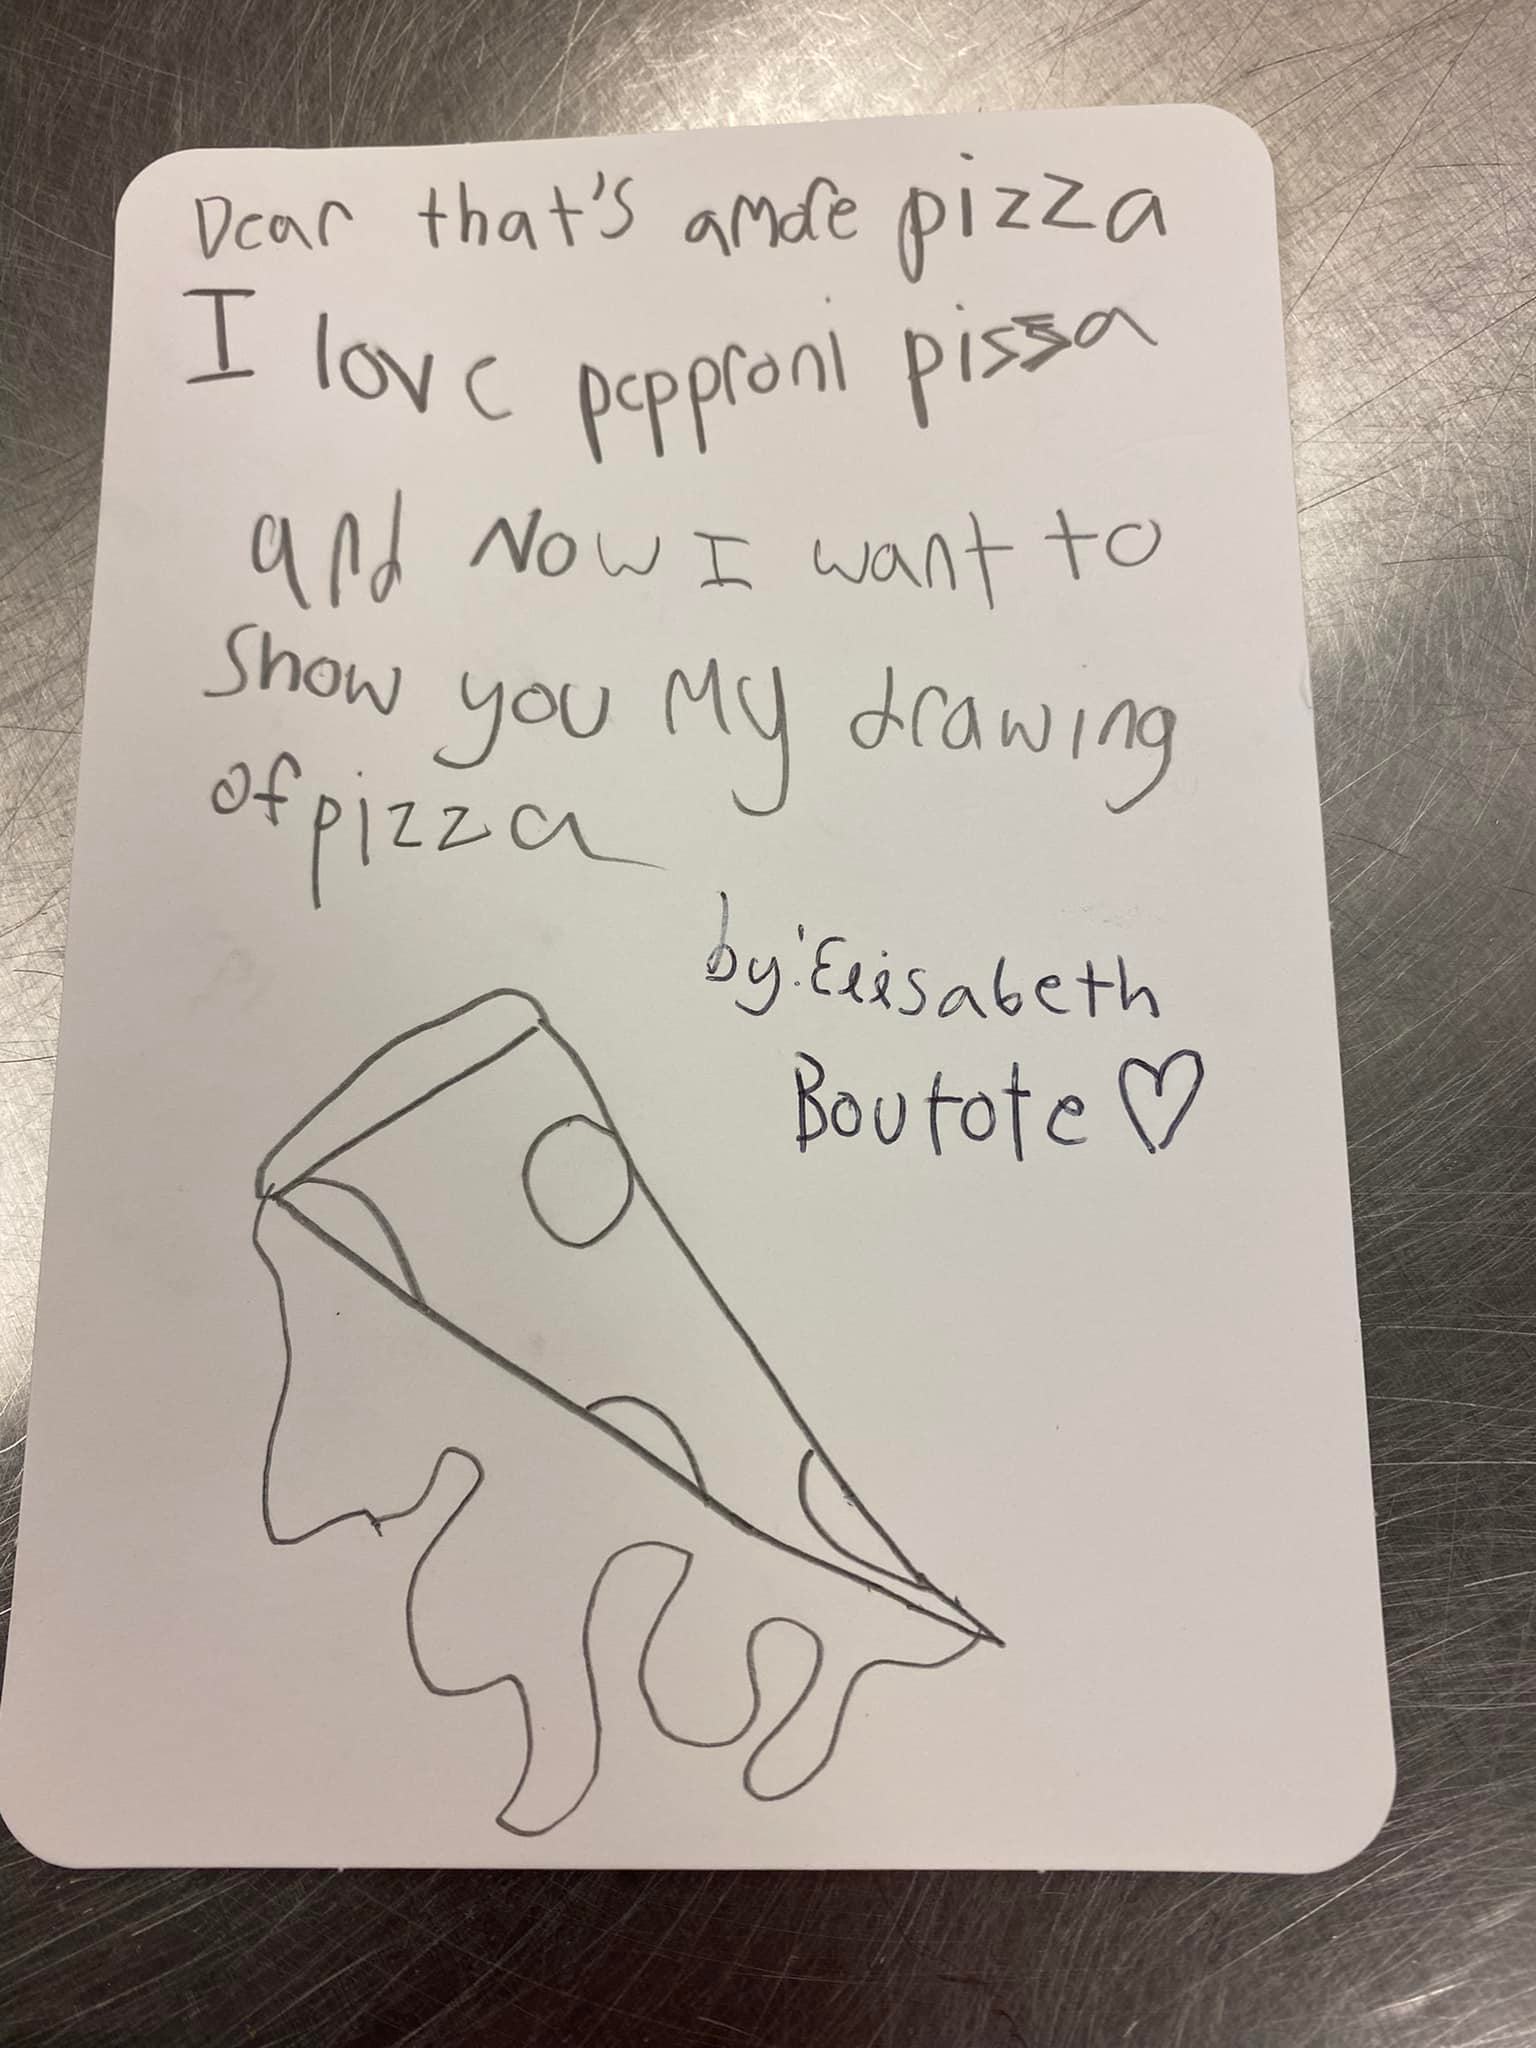 Dear that's amore pizza
I love pepproni pissa
and Now I want to
Show you My drawing
of pizza
by: Elisabeth
Boutote ♡